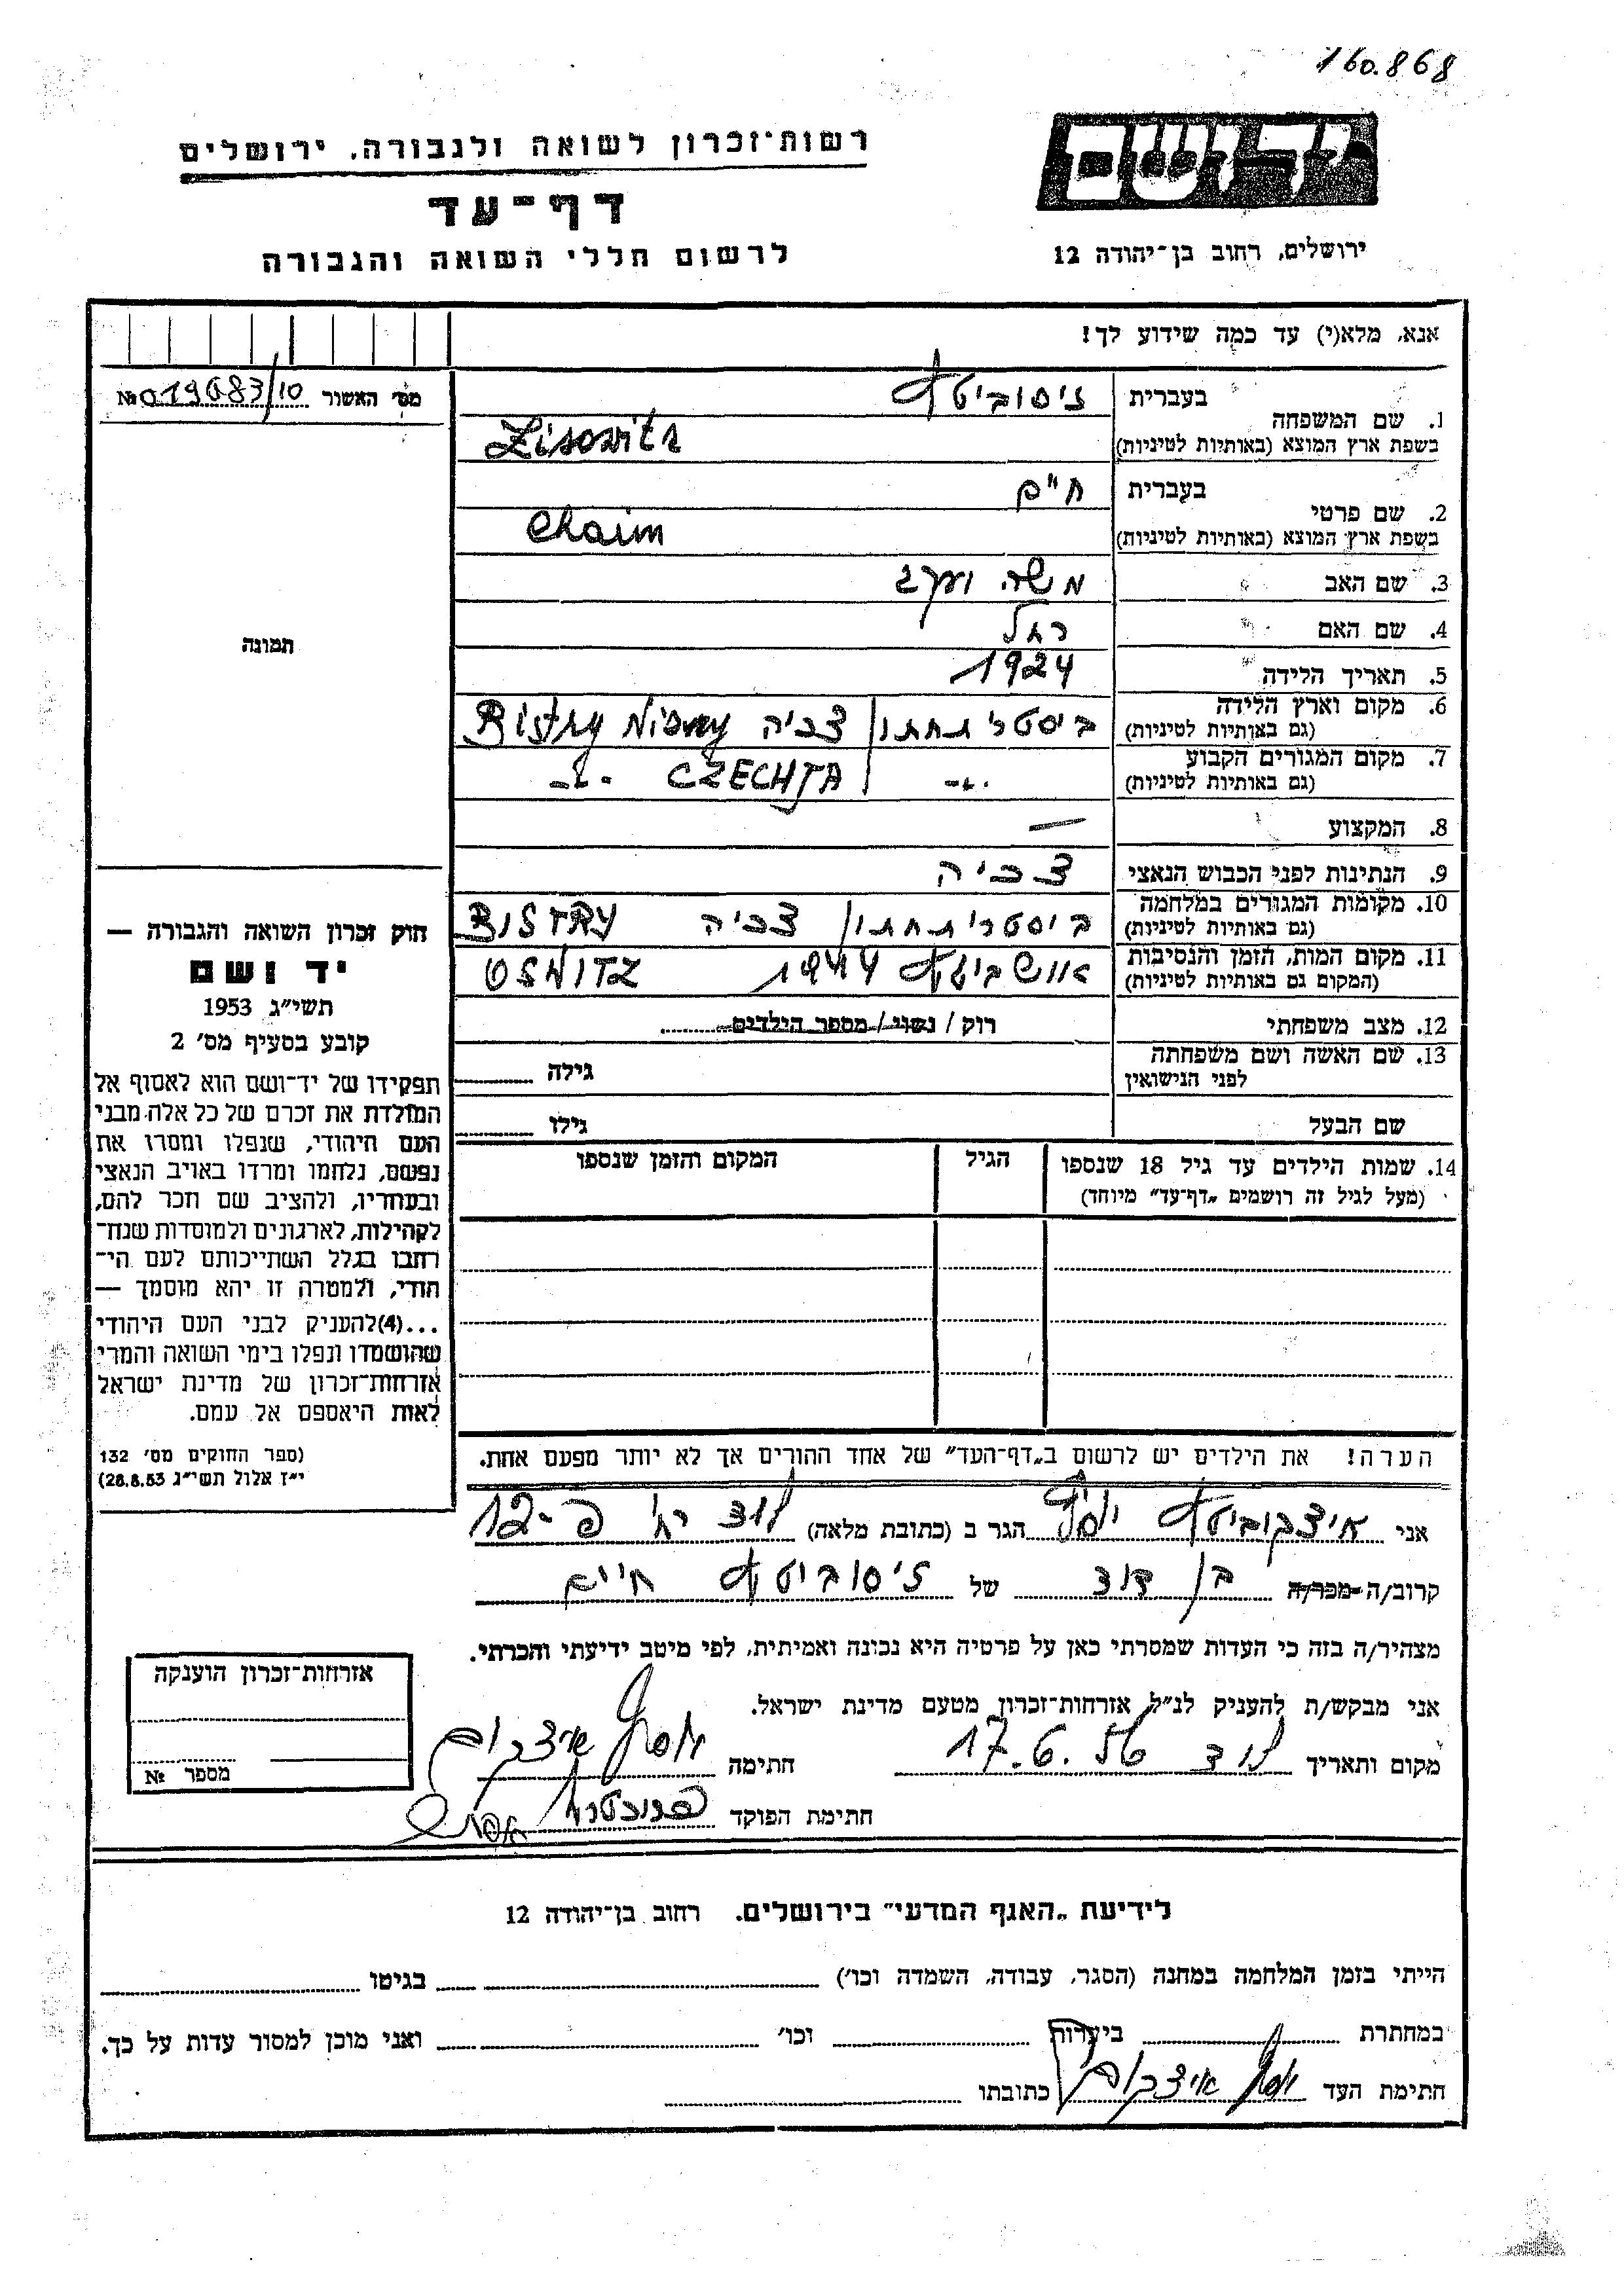 160.868
רשות־זכרון לשואה ולגבורה, ירושלים
יד ושם
דף־עד
לרשום חללי השואה והגבורה
ירושלים, רחוב בן־יהודה 12
אנא, מלא(י) עד כמה שידוע לך!
מס׳ האשור №019683/10
1. שם המשפחה בעברית זיסוביטש
בשפת ארץ המוצא (באותיות לטיניות) Zisowits
2. שם פרטי בעברית חיים
בשפת ארץ המוצא (באותיות לטיניות) Chaim
3. שם האב משה
4. שם האם רחל
5. תאריך הלידה 1924
6. מקום וארץ הלידה (גם באותיות לטיניות) ביסטרי תחתון צכיה Bistry Nisny
7. מקום המגורים הקבוע (גם באותיות לטיניות) -"- CZECHJA -"-
8. המקצוע —
9. הנתינות לפני הכבוש הנאצי צכיה
10. מקומות המגורים במלחמה (גם באותיות לטיניות) ביסטרי תחתון צכיה BISTRY
11. מקום המות, הזמן והנסיבות (המקום גם באותיות לטיניות) אושביטש 1944 OSWITZ
12. מצב משפחתי רוק / נשוי / מספר הילדים
13. שם האשה ושם משפחתה לפני הנישואין גילה
שם הבעל גילו
14. שמות הילדים עד גיל 18 שנספו
(מעל לגיל זה רושמים „דף־עד״ מיוחד)
הגיל
המקום והזמן שנספו
תמונה
חוק זכרון השואה והגבורה —
יד ושם
תשי״ג 1953
קובע בסעיף מס׳ 2
תפקידו של יד־ושם הוא לאסוף אל
המולדת את זכרם של כל אלה מבני
העם היהודי, שנפלו ומסרו את
נפשם, נלחמו ומרדו באויב הנאצי
ובעוזריו, ולהציב שם וזכר להם,
לקהילות, לארגונים ולמוסדות שנח־
רבו בגלל השתייכותם לעם הי־
הודי, ולמטרה זו יהא מוסמך —
...(4) להעניק לבני העם היהודי
שהושמדו ונפלו בימי השואה והמרי
אזרחות־זכרון של מדינת ישראל
לאות היאספם אל עמם.
(ספר החוקים מס׳ 132
י״ז אלול תשי״ג 28.8.53)
הערה! את הילדים יש לרשום ב„דף־העד״ של אחד ההורים אך לא יותר מפעם אחת.
אני איצקוביטש יוסף הגר ב (כתובת מלאה) לוד 12-
קרוב/ה מכר/ה בן דוד של זיסוביטש חיים
מצהיר/ה בזה כי העדות שמסרתי כאן על פרטיה היא נכונה ואמיתית, לפי מיטב ידיעתי והכרתי.
אני מבקש/ת להעניק לנ״ל אזרחות־זכרון מטעם מדינת ישראל.
מקום ותאריך לוד 17.6.56 חתימה
חתימת הפוקד
אזרחות־זכרון הוענקה
מספר №
לידיעת „האגף המדעי״ בירושלים, רחוב בן־יהודה 12
הייתי בזמן המלחמה במחנה (הסגר, עבודה, השמדה וכו׳) בגיטו
במחתרת ביערות וכו׳ ואני מוכן למסור עדות על כך.
חתימת העד כתובתו